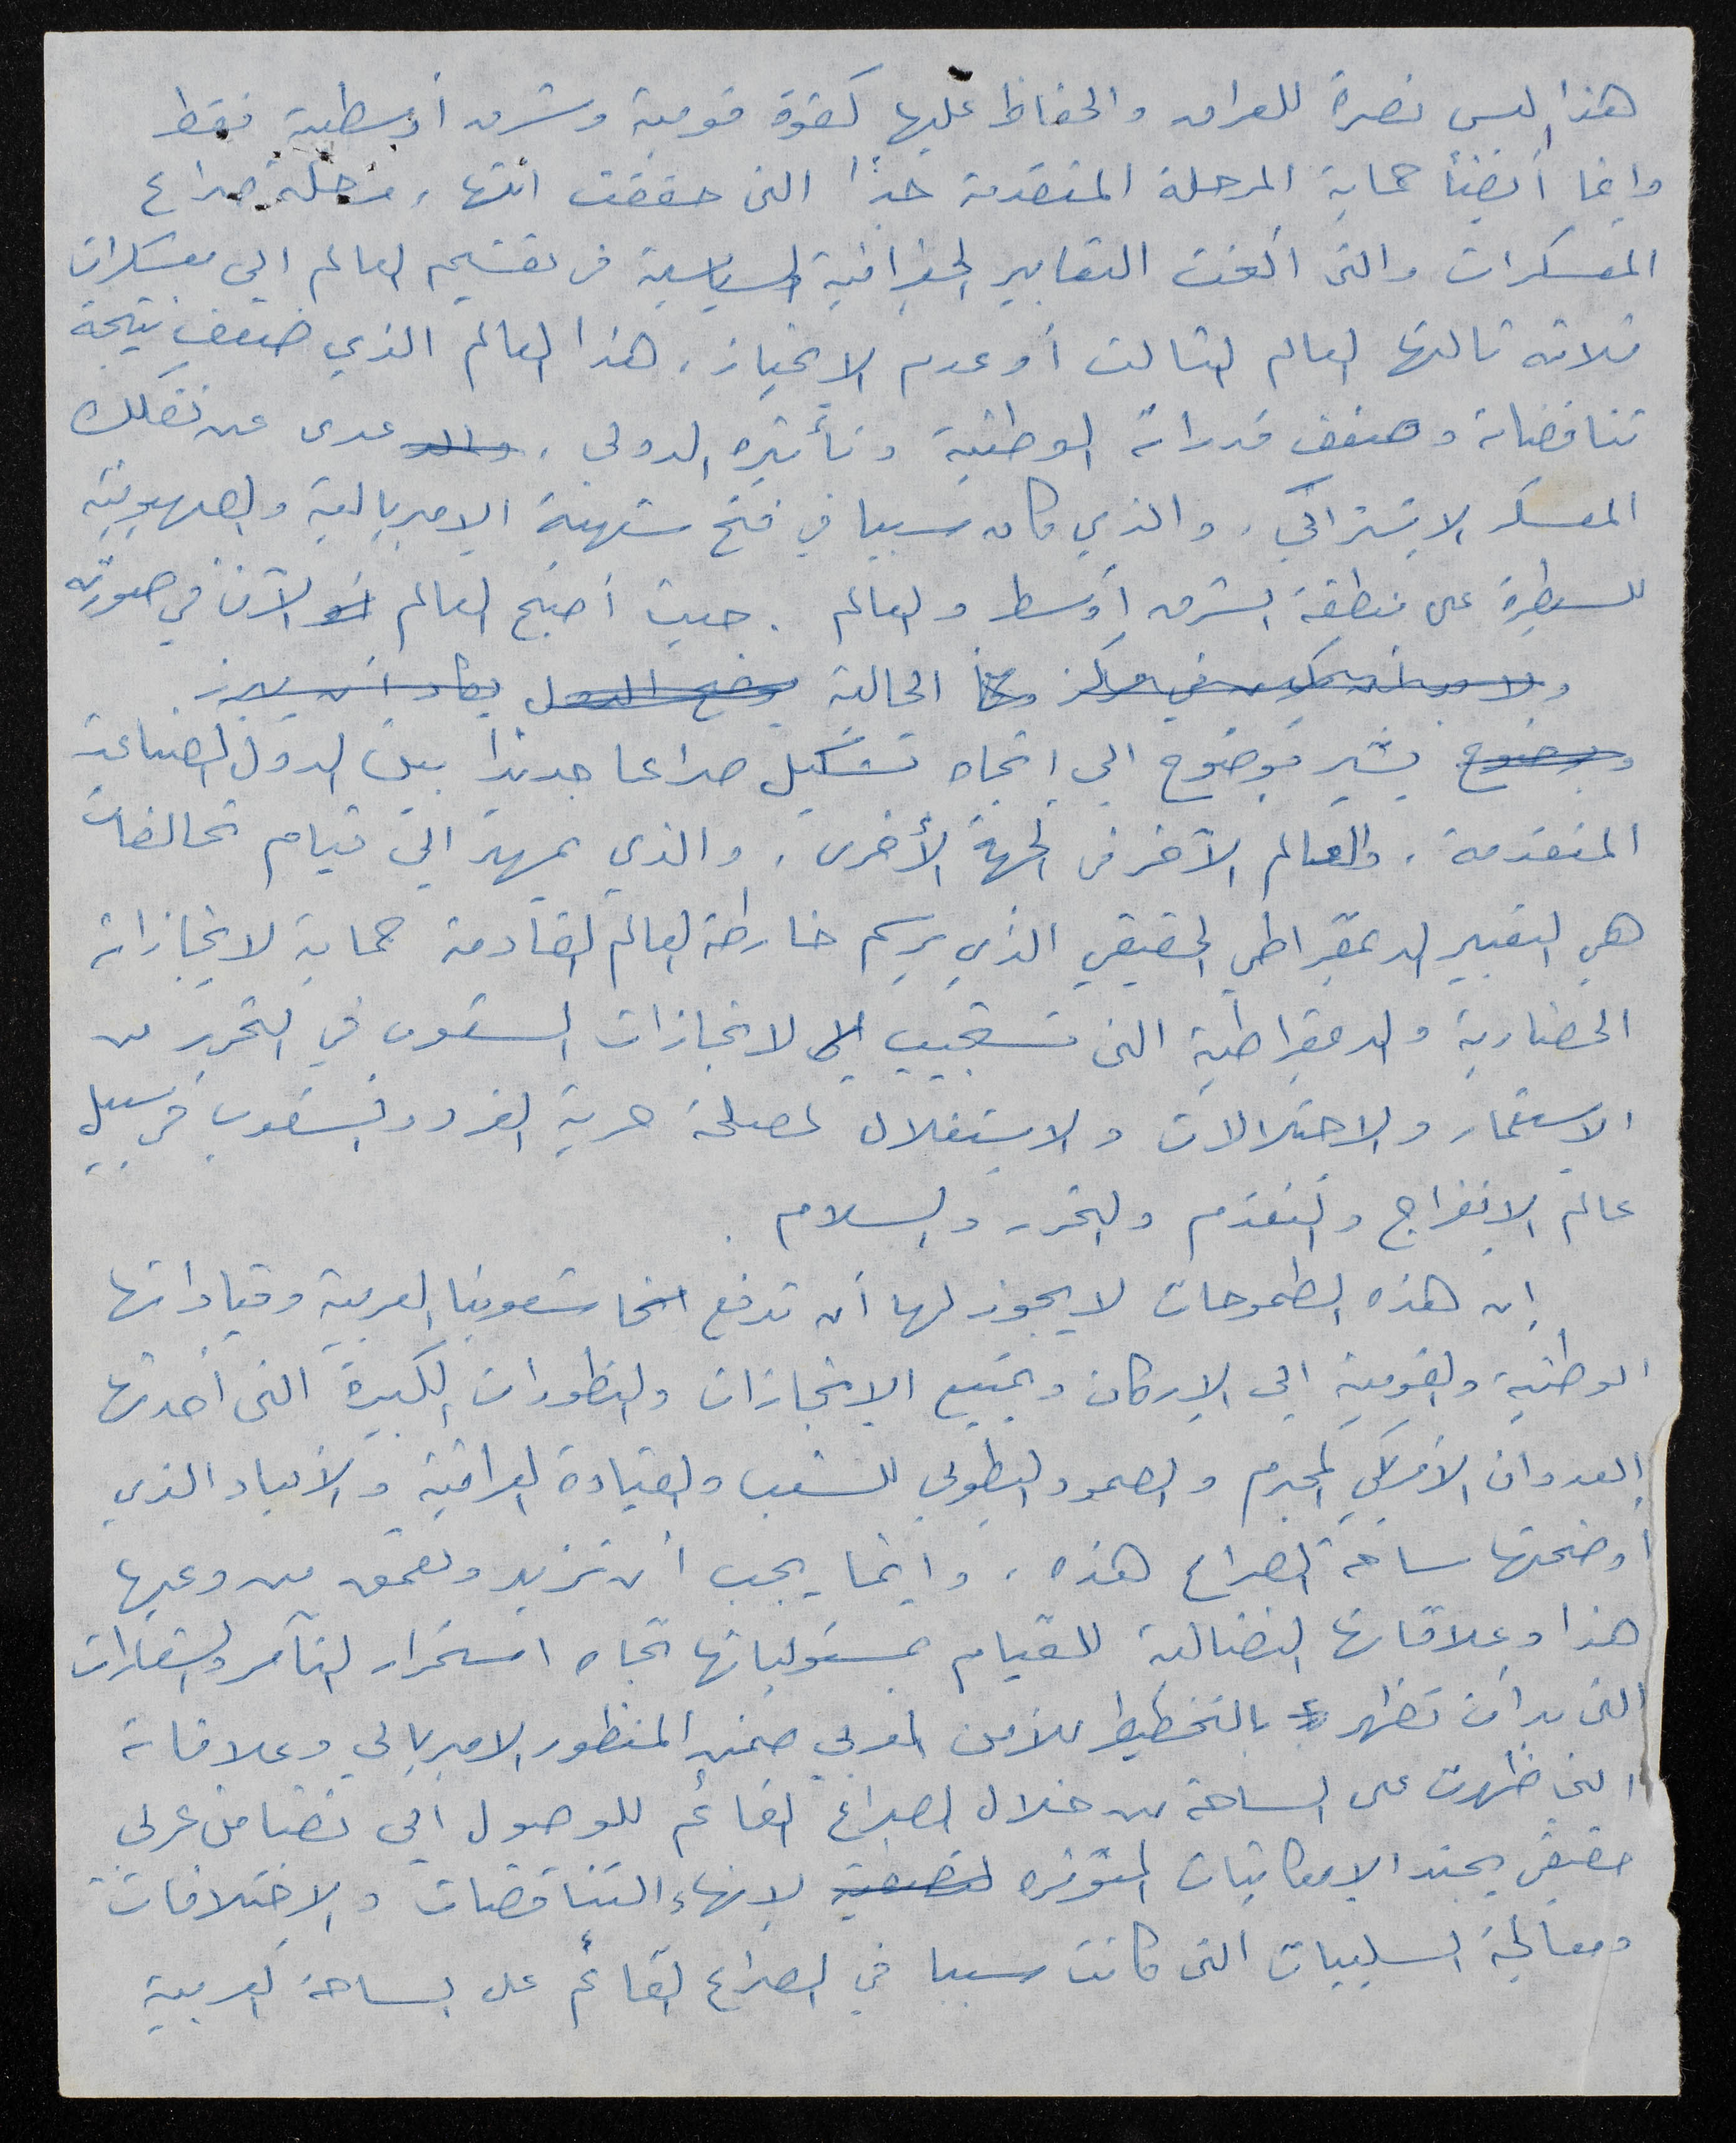 هذا ليس نصرة للعراق والحفاظ عليها كقوة قومية وشرق أوسطية فقط
وإنما أيضاً حماية المرحلة المتقدمة جداً التي حققت انتهاء مرحلة صراع
المعسكرات والتي ألغت التعابير الجغرافية السياسية في تقسيم العالم الى معسكرات
ثلاثه ثالثها العالم الثالث أو عدم الانحياز، هذا العالم الذي ضعف نتيجة
تناقضاته وضعف قدراته الوطنية وتأثيره الدولي، عدى عن تفكك
المعسكر الاشتراكي، والذي كان سببا في فتح شهية الامبريالية والصهيونية
للسيطرة على منطقة الشرق أوسط والعالم. حيث أصبح العالم الآن في صورته
الحالية
يشير بوضوح الى اتجاه تشكيل صراعا جديدا بين الدول الصناعية
المتقدمة، والعالم الآخر في الجهة الأخرى، والذي يمهد الى قيام تحالفات
هي التعبير الديمقراطي الحقيقي الذي يرسم خارطة العالم القادمة حماية لانجازاته
الحضارية والدمقراطية التي تستجيب لانجازات الشعوب في التحرر من
الاستعمار والاحتلالات والاستغلال لمصلحة حرية الفرد والشعوب في سبيل
عالم الانفراج والتقدم والتحرر والسلام.
إن هذه الطموحات لا يجوز لها أن تدفع شعوبنا العربية وقياداتها
الوطنية والقومية الى الاركان وتمييع الانجازات والتطورات الكبيرة التي أحدثها
العدوان الأمريكي المجرم والصمود البطولي للشعب والقيادة العراقية والأبعاد الذي
أوضحتها ساحة الصراع هذه، وإنما يجب أن تزيد وتعمق من وعيها
هذا وعلاقاتها النضالية للقيام بمسئولياتها تجاه استمرار التآمر والشعارات
التي بدأت تظهر بالتخطيط للأمن العربي ضمن المنظور الامبريالي وعلاقاته
التي ظهرت على الساحة من خلال الصراع القائم للوصول الى تضامن عربي
حقيقي يجند الامكانيات المتوفره لانهاء التناقضات والاختلافات
ومعالجة السلبيات التي كانت سببا في الصراع القائم على الساحة العربية